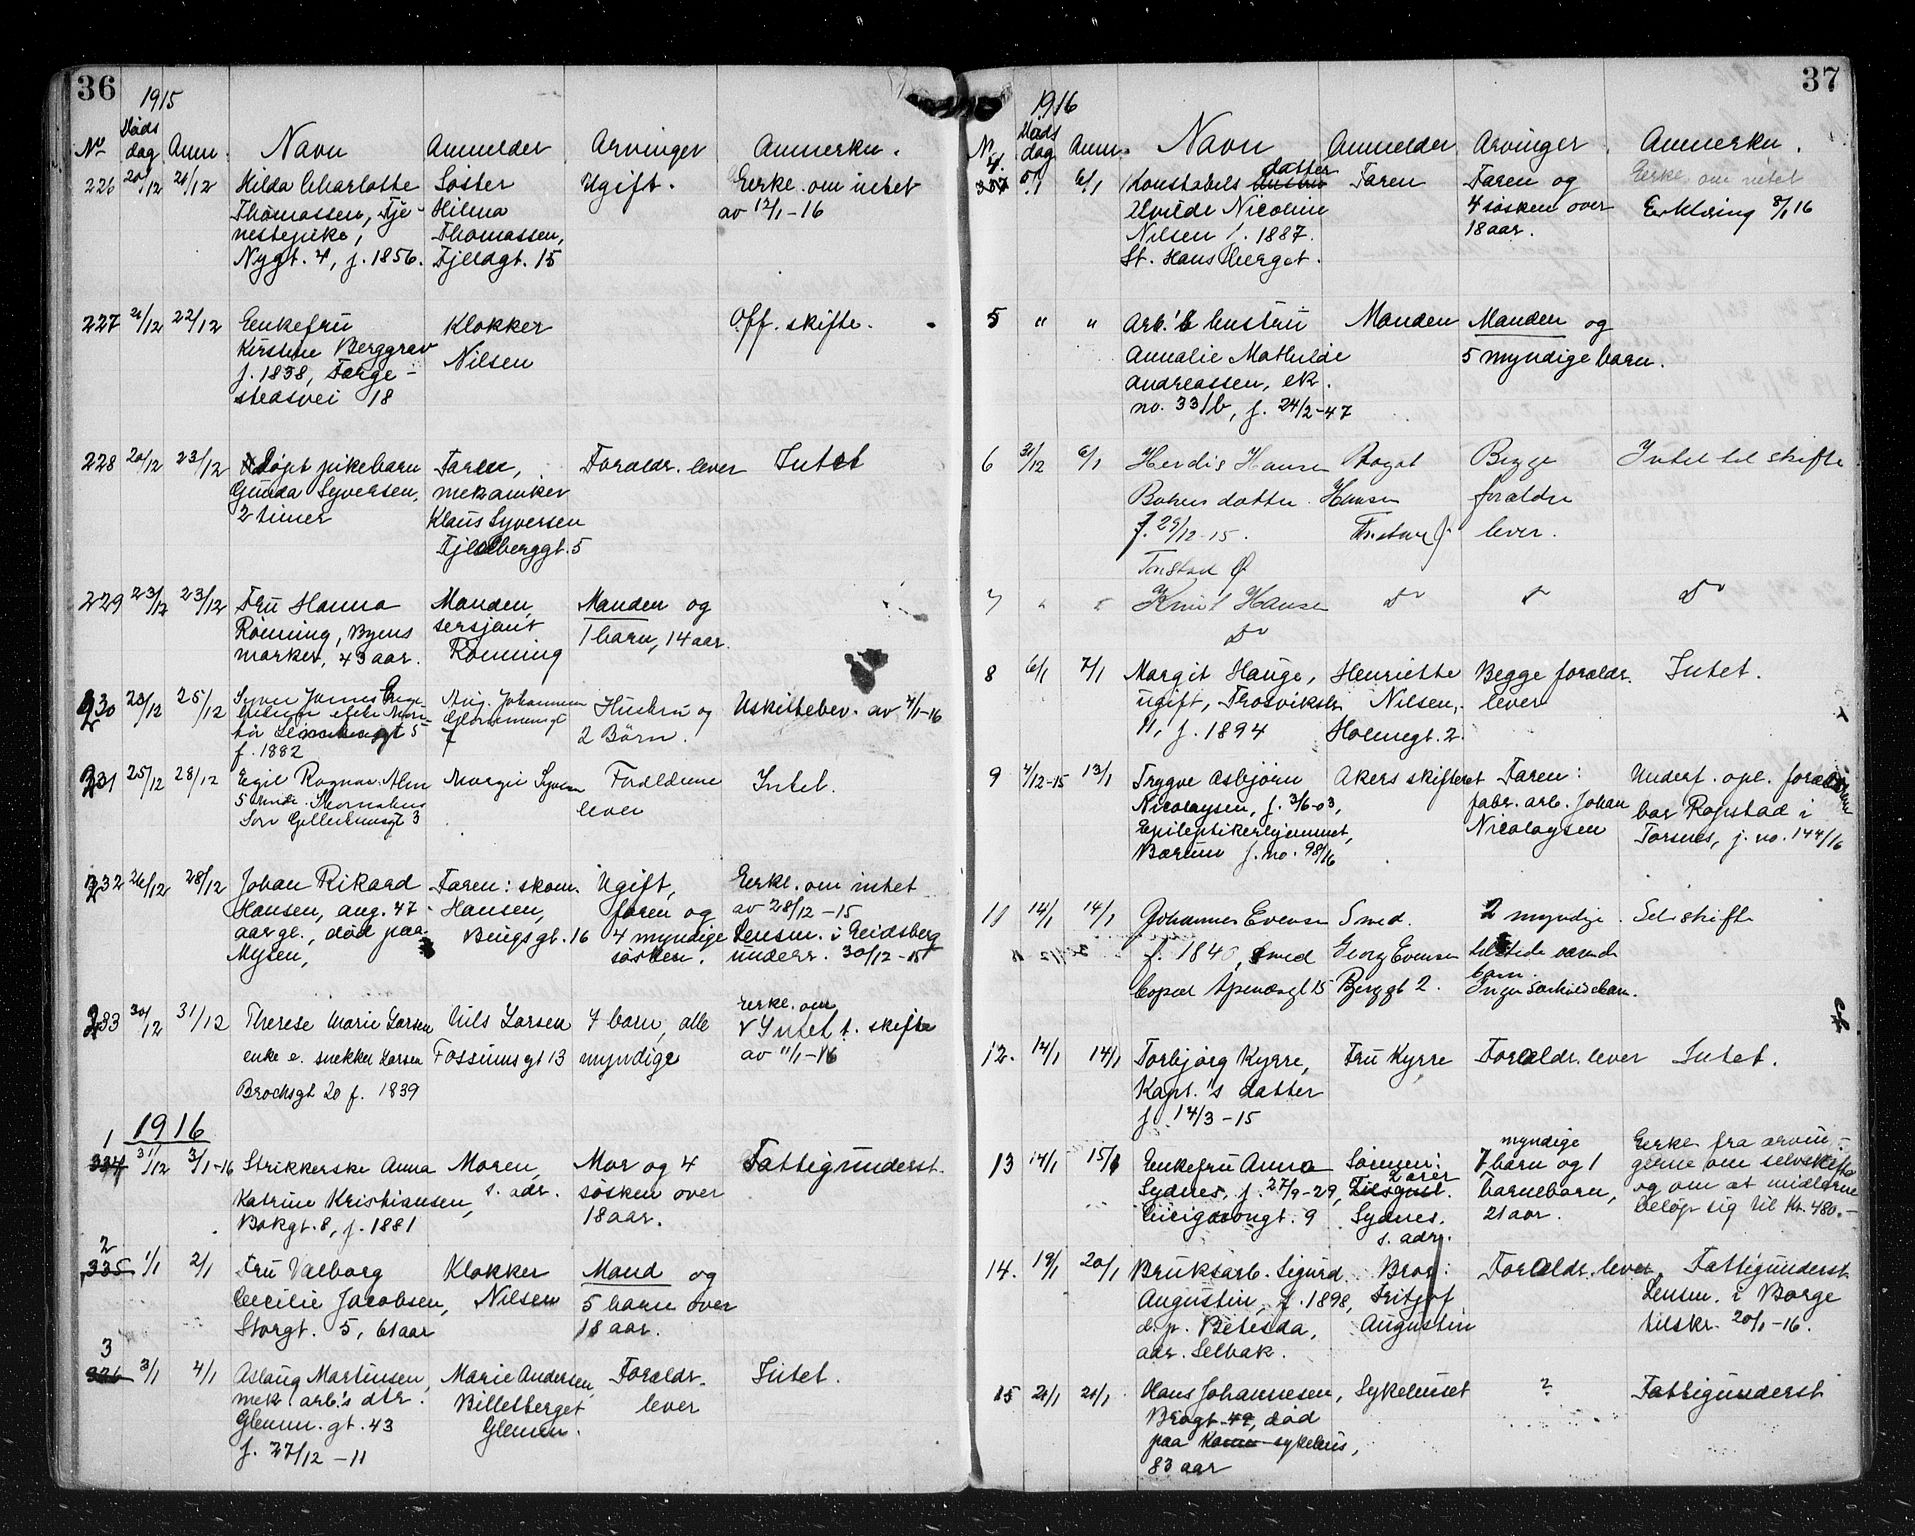 36
1915
No Døds dag Anm. Navn Anmelder Arvinger Anmerkn.
226 20/12 21/12 Hilda Charlotte Søster Ugift. Erkl. om intet
Thomassen, Tje- Hilma av 12/1-16
nestepike, Thomassen,
Nygt. 4, f. 1856. Fjeldgt. 15
227 21/12 22/12 Enkefru Klokker Off. skifte.
Kirstine Berggrav Nilsen
f. 1838, Færge-
stedsvei 18
228 20/12 23/12 Udøpt pikebarn Faren, Foreldr. lever Intet
Gunda Syversen, mekaniker
2 timer Klaus Syversen
Fjeldberggt. 5
229 23/12 23/12 Fru Hanna Manden, Manden og
Rönning, Byens sersjant 1 barn, 14 aar.
marker, 43 aar. Rönning
230 23/12 25/12 Aug. Johannesen Hustru og Uskiftebev. av 4/1-16
2 Børn.
f. 1882
231 25/12 28/12 Egil Ragnar Forældrene Intet.
lever
232 26/12 28/12 Johan Rikard Faren: skom. Ugift, Erkl. om intet
Hansen, ang. 47 Hansen, faren og av 28/12-15
aar gl., død paa Bingsgt. 16 4 myndige Lensm. i Eidsberg
Mysen, søsken. underr. 30/12-15
233 30/12 31/12 Therese Marie Larsen Nils Larsen 7 barn, alle Erkl. om
enke e. snekker Larsen Fossumsgt 13 myndige Intet t. skifte
Brochsgt 20 f. 1839 av 11/1-16
1916
1 334 31/12 3/1-16 Strikkerske Anna Moren, Mor og 4 Fattigunderst.
Katrine Kristiansen, s. adr. søsken over
Bakgt. 8, f. 1881 18 aar.
2 335 1/1 2/1 Fru Valborg Klokker Mand og
Cecilie Jacobsen, Nilsen 5 barn over
Storgt. 5, 61 aar 18 aar.
3 336 3/1 4/1 Aslaug Martinsen, Marie Andersen, Foreldr. Intet.
mek. arb.'s dtr. Billetberget lever
Glemm. gt. 43 Glemen.
f. 27/12-11
37
1916
No Døds dag Anm. Navn Anmelder Arvinger Anmerkn.
4 337 5/1 6/1 Konstabels hustru datter Faren Faren og Erkl. om intet
Hvilde Nicoline 4 søsken over Erklæring 8/1 16
Nilsen f. 1887. 18 aar.
St. Hansberget.
5 " " Arb.'s hustru Manden Manden og
Annalie Mathilde 5 myndige barn.
Andreassen, ek.
no. 331b, f. 24/2-47
6 31/12 6/1 Herdis Hansen Aagot Begge Intet til skifte
Hansen forældre
f. 29/12-15. lever.
7 " " Knut Hansen Do Do Do
Do
8 6/1 7/1 Margit Hauge, Henriette Begge foreldr. Intet.
ugift, Trosviksbr. Nilsen, lever
11, f. 1894 Holmegt. 2.
9 4/12-15 13/1 Trygve Asbjørn Akers skifteret Faren: Underf. opl. foreldrene
Nicolaysen, f. 3/6-03, fabr. arb. Johan bor Ropstad i
Epileptikerhjemmet, Nicolaysen Torsnes, j. no. 144/16
Bærum j. no. 98/16
11 12/1 14/1 Johannes Evensen Smed. 2 myndige Selvskifte
f. 1840, smed Georg Evensen tilstede værende
Apenæsgt 15 Berggt 2. barn.
Ingen særkuldsbarn.
12. 12/1 14/1 Torbjørg Kyrre, Fru Kyrre Foreldr. lever Intet.
Kapt.'s datter
f. 14/3-15
13 14/1 15/1 Enkefru Anna Sønnen: 7 myndige barn og 1 Erkl. fra arvin-
Sydnes, f. 27/9-29, barnebarn, gerne om selvskifte
Cicignongt. 9 Sydnes. 21 aar. og om at midlerne
s. adr. beløp sig til Kr. 480.-
14. 19/1 20/1 Bruksarb. Sigurd Bror: Foreldr. lever Fattigunderst
Augustin, f. 1898, Fritjof Lensm. i Borge
d. p. Betesda, Augustin tilskr. 20/1-16.
adr. Selbak.
15 21/1 21/1 Hans Johannesen, Sykehuset ? Fattigunderst
Brogt. 42, død
paa Kom sykehus,
83 aar